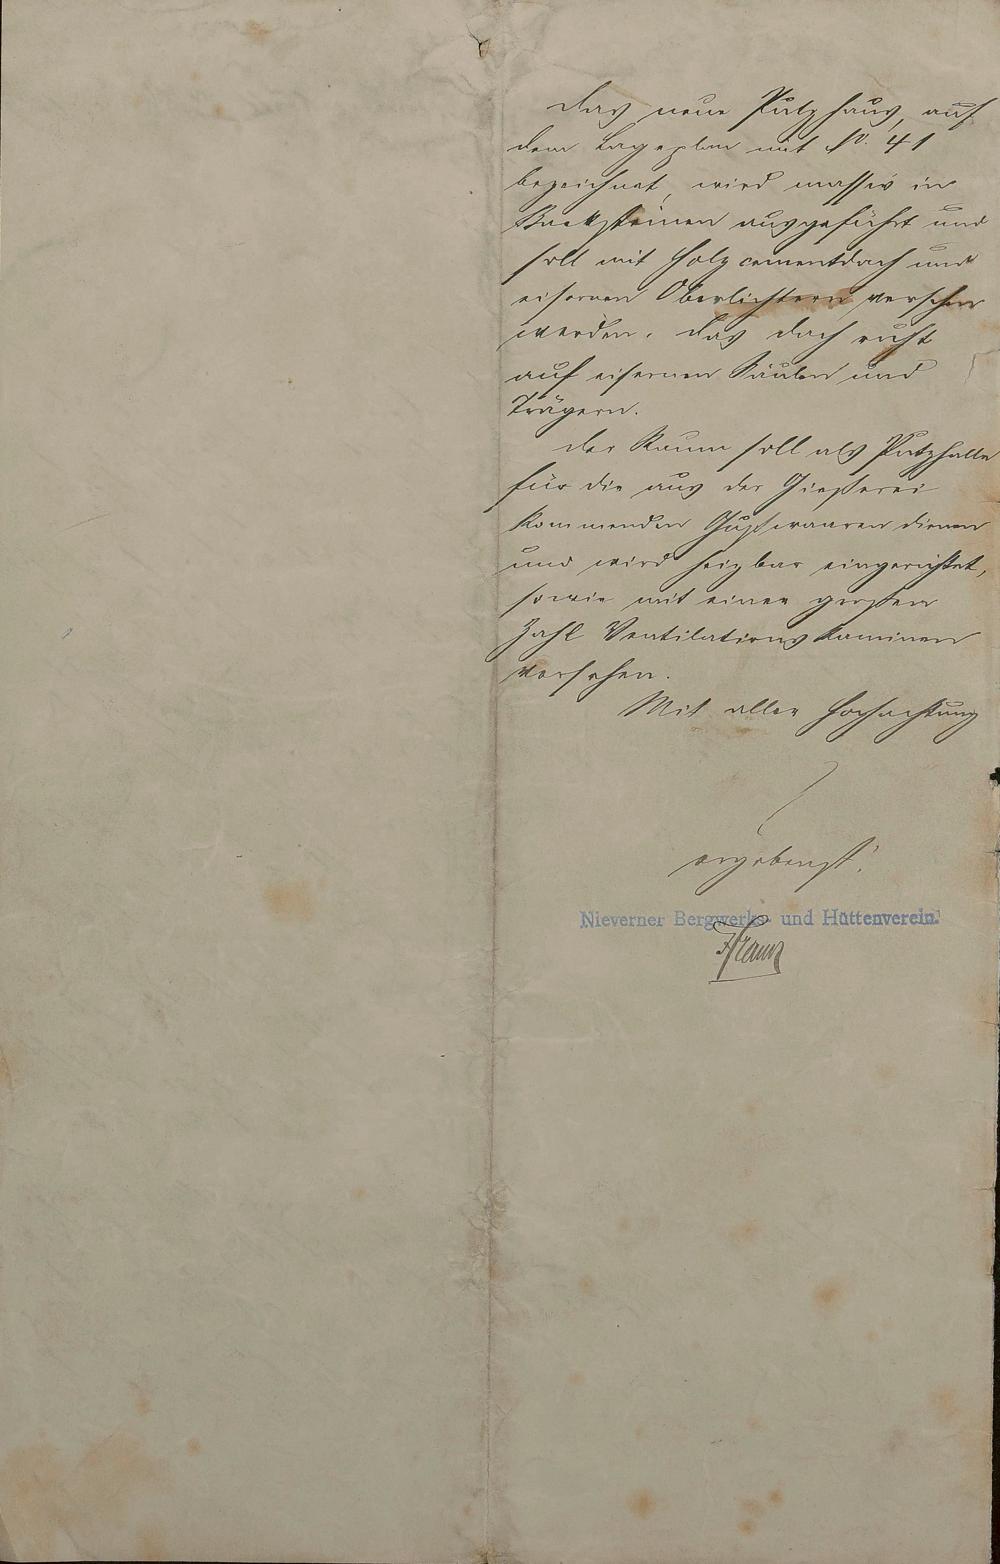 Das neue Putzhaus, auf
dem Lageplan mit No. 41
bezeichnet, wird massiv in
Backsteinen ausgeführt und
soll mit Holzcementdach und
eisernen Oberlichtern versehen
werden. Das Dach ruht
auf eisernen Säulen und
Trägern.
Der Raum soll als Putzhalle
für die aus der Gießerei
kommenden Gußwaaren dienen
und wird heizbar eingerichtet,
sowie mit einer großen
Zahl Ventilationskaminen
versehen.
Mit aller Hochachtung
ergebenst!
Nieverner Bergwerks- und Hüttenverein.